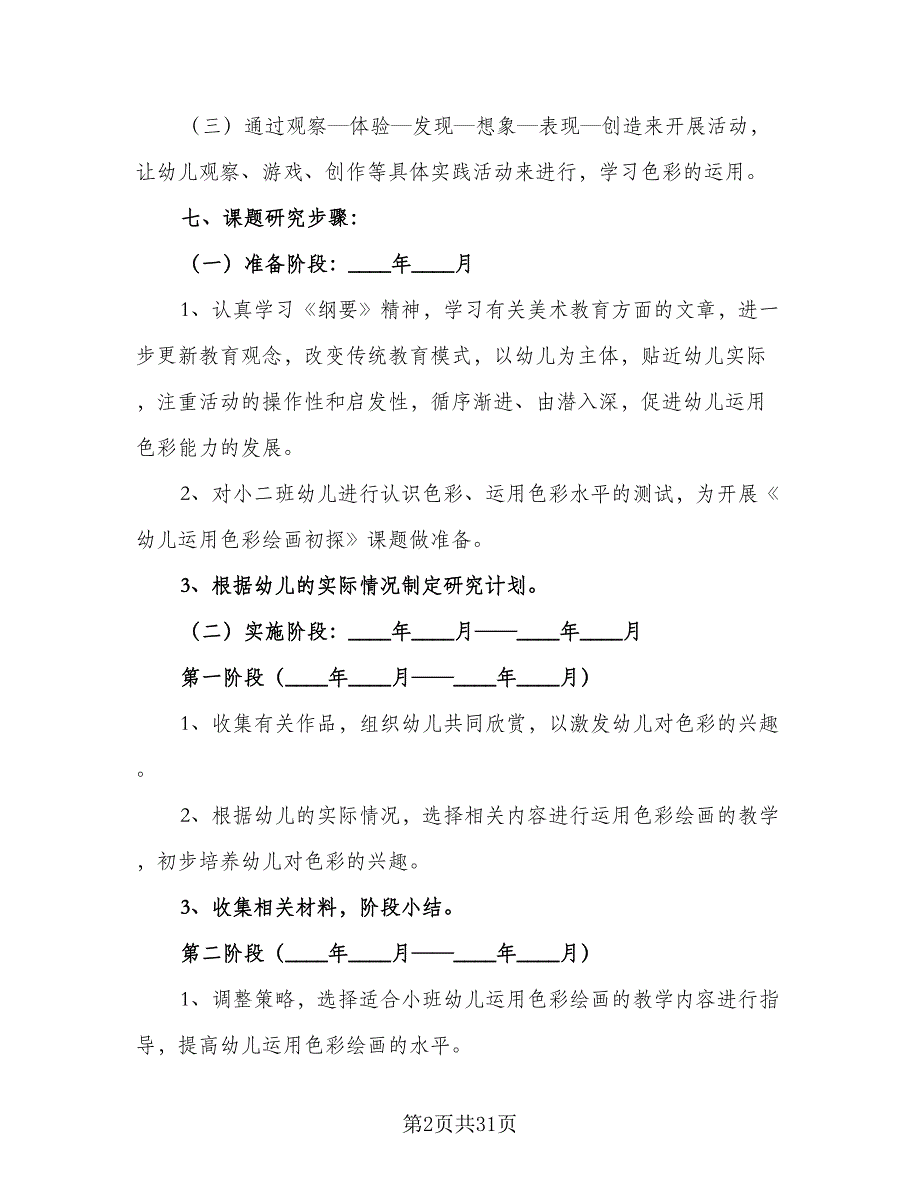 （三）通过观察—体验—发现—想象—表现—创造来开展活动，
让幼儿观察、游戏、创作等具体实践活动来进行，学习色彩的运用。
七、课题研究步骤：
（一）准备阶段：____年____月
1、认真学习《纲要》精神，学习有关美术教育方面的文章，进一
步更新教育观念，改变传统教育模式，以幼儿为主体，贴近幼儿实际
，注重活动的操作性和启发性，循序渐进、由潜入深，促进幼儿运用
色彩能力的发展。
2、对小二班幼儿进行认识色彩、运用色彩水平的测试，为开展《
幼儿运用色彩绘画初探》课题做准备。
3、根据幼儿的实际情况制定研究计划。
（二）实施阶段：____年____月——____年____月
第一阶段（____年____月——____年____月）
1、收集有关作品，组织幼儿共同欣赏，以激发幼儿对色彩的兴趣
。
2、根据幼儿的实际情况，选择相关内容进行运用色彩绘画的教学
，初步培养幼儿对色彩的兴趣。
3、收集相关材料，阶段小结。
第二阶段（____年____月——____年____月）
1、调整策略，选择适合小班幼儿运用色彩绘画的教学内容进行指
导，提高幼儿运用色彩绘画的水平。
第2页共31页